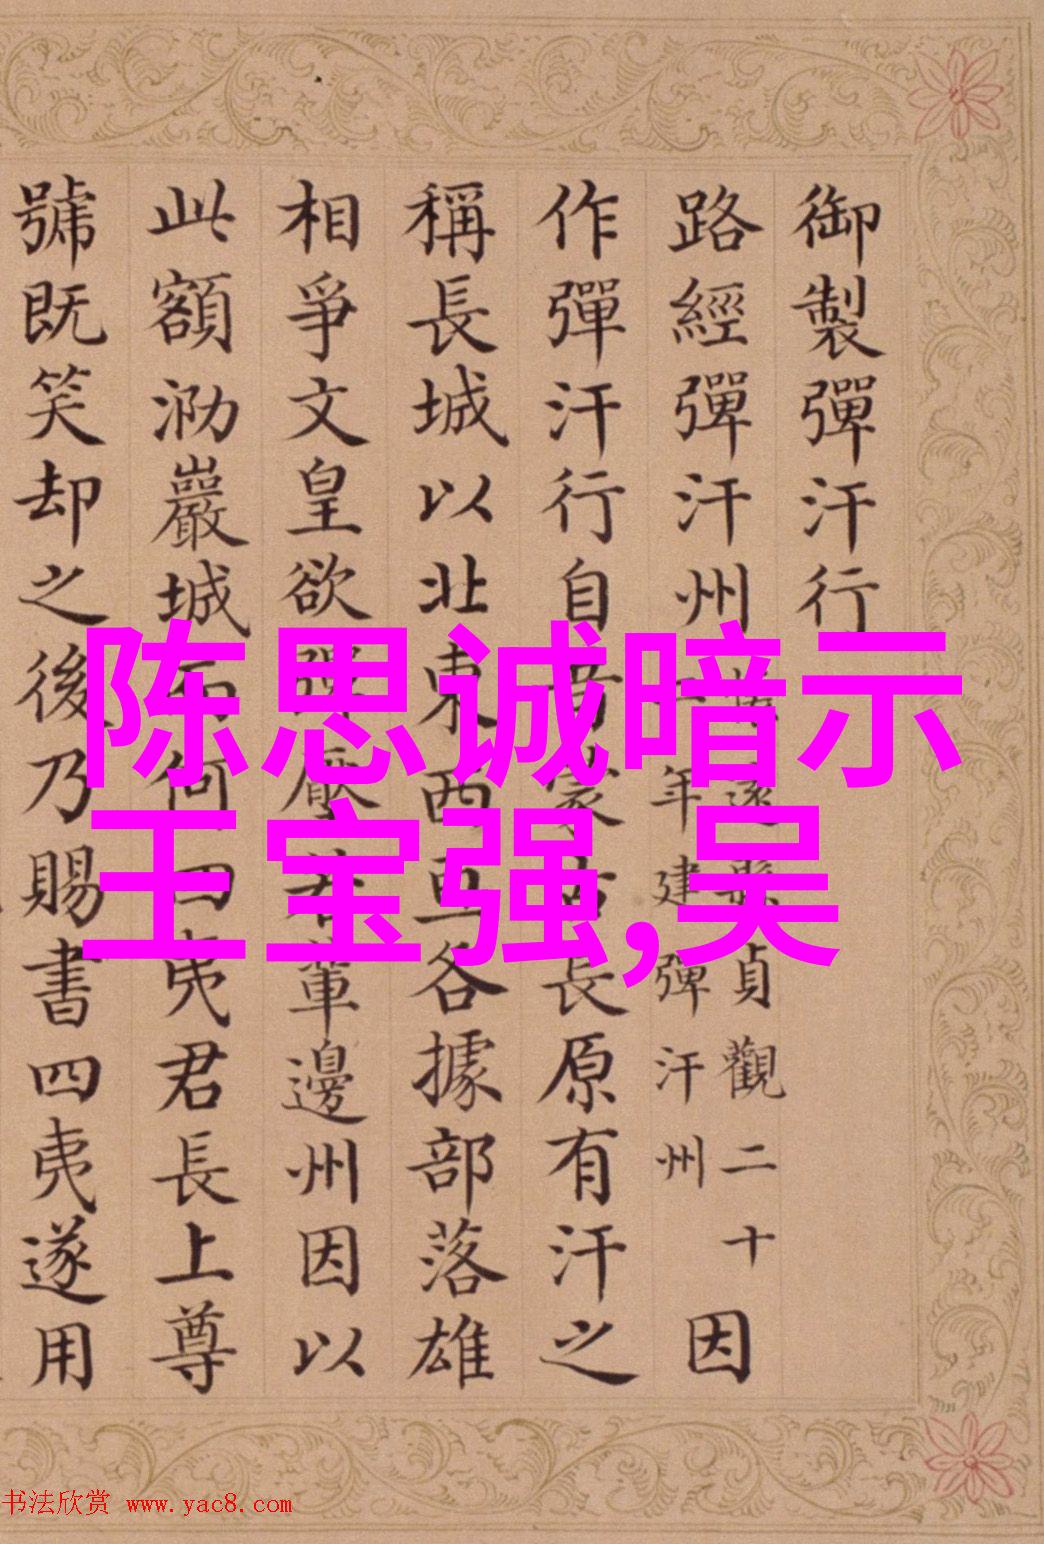 御製彈汗行
路經彈汗州
縣貞觀二十
年建彈汗州
因
作彈汗行自昔蒙古長原有汗之
稱長城以北東西亙各據部落雄
相爭文皇欲彈壓若輩邊州因以
此額泐巖城石何曰夷君長上尊
號既笑却之後乃賜書四夷遂用
陈思诚暗示
王宝强,吴
书法欣赏 www.yac8.com